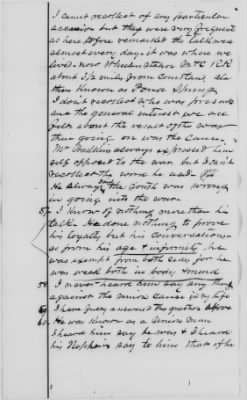 I cannot recollect of any particular
occasion but they were very frequent
as heretofore remarked the talk was
almost every day, it was where we
lived now Wheeler Station M & C R R
about 3 1/2 miles from Courtland, Ala
then known as Pond Spring
I don't recollect who was present
and the general interest we all
felt about the result of the war
then going on was the cause.
Mr always expressed him
self opposed to the war but I can't
recollect the word he used
He always said the South was wrong
in going into the war
57 I know of nothing more than his
talk. He done nothing to prove
his loyalty but his conversations
as from his age & infirmity he
was exempt from both sides for he
was weak both in body & mind
58 I never heard him say any thing
against the union cause in my life
59 I have fully answered the question before
60 He was known as a Union man
I heard him say he was & I heard
his Nephew say to him that if he